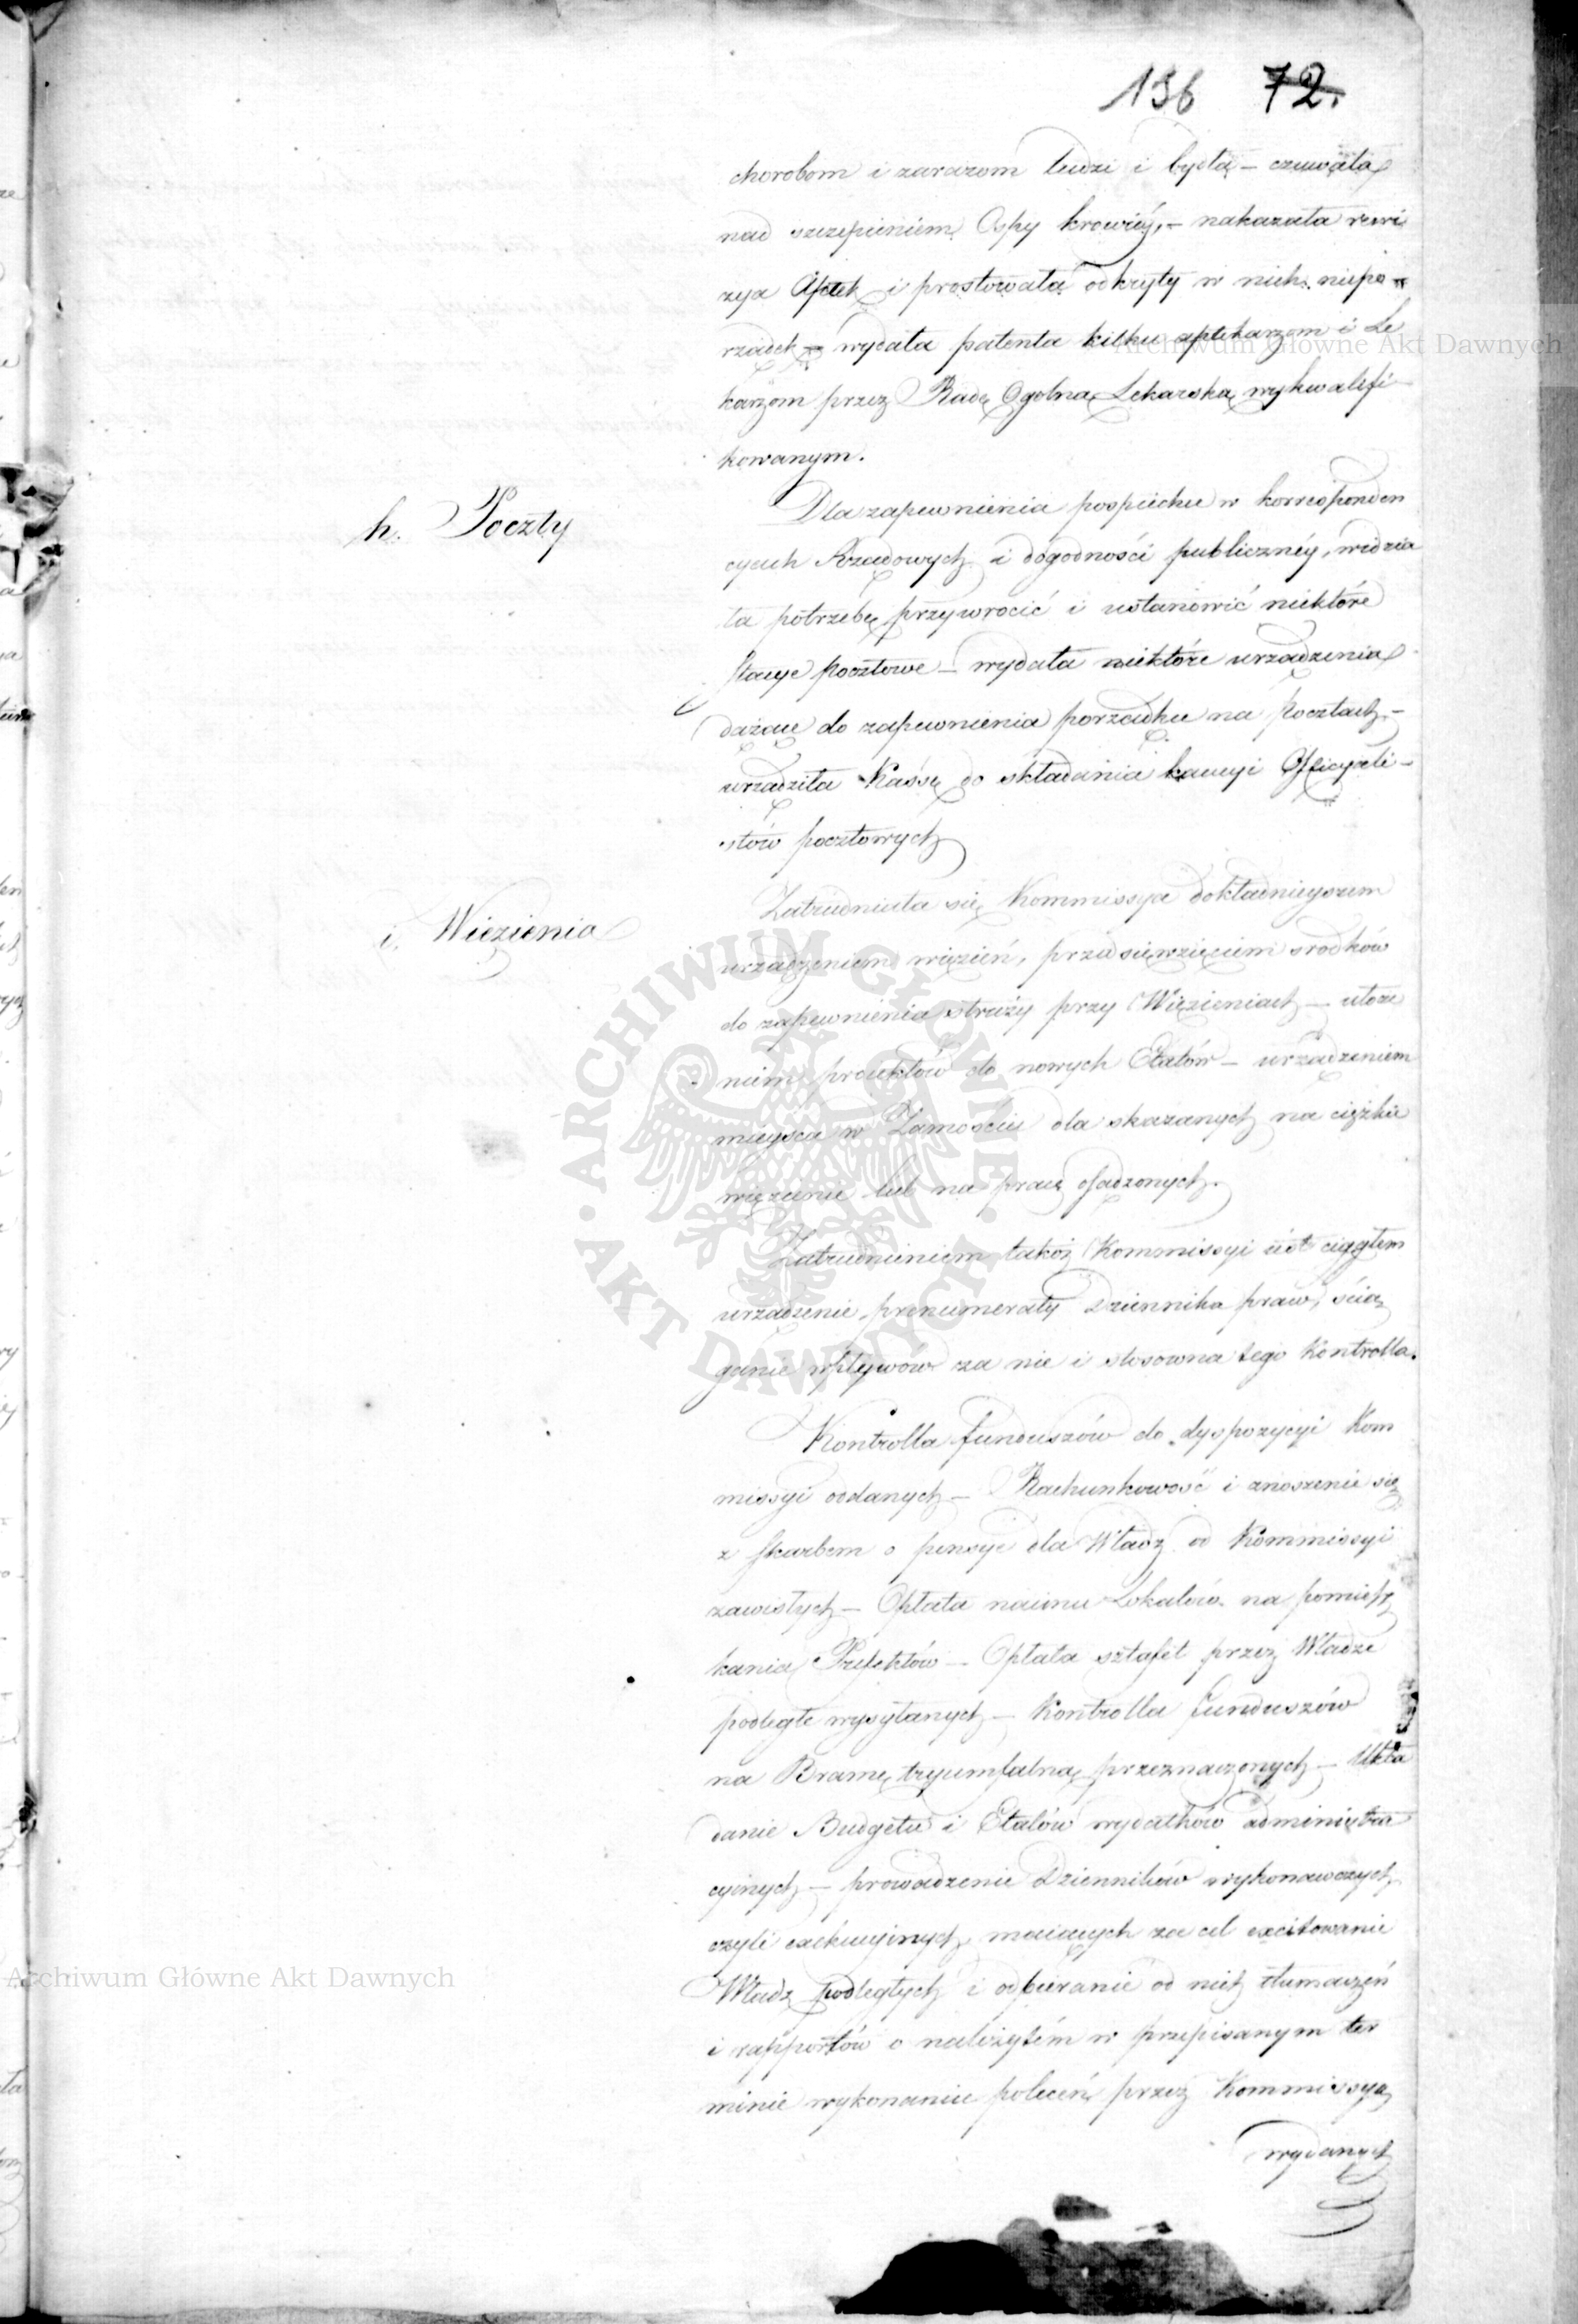 136 72.
chorobom i zarazom ludzi i bydła – czuwała
nad szczepieniem Ospy krowiéy, – nakazała rewi
zya Aptek i prostowała odkryty w nich niepo-
rządek – wydała patenta kilku aptekarzom i Le
karzom przez Radę Ogolną Lekarską wykwalifi
kowanym.
h. Poczty
Dla zapewnienia pospiechu w korresponden
cyach Rządowych i dogodności publicznéy, widzia
ła potrzebę przywrocić i ustanowić niektóre
stacye pocztowe – wydała niektóre urządzenia
dążące do zapewnienia porządku na pocztach –
urządziła Kassę do składania kaucyi Officyali-
stów pocztowych
i. Więzienia
Zatrudniała się Kommissya dokładnieyszem
urządzeniem więzień, przedsięwzięciem srodków
do zapewnienia straży przy Więzieniach – ułoże
niem proiektów do nowych Etatów – urządzeniem
mieysca w Zamościu dla skazanych na ciężkie
więzienie lub na pracę osadzonych.
Zatrudnieniem takoż Kommissyi iest ciągłem
urządzenie prenumeraty Dziennika praw, ścią
ganie wpływow za nie i stosowna tego Kontrolla.
Kontrolla funduszów do dyspozycyi Kom
missyi oddanych – Rachunkowość i znoszenie się
z skarbem o pensye dla Władz od Kommissyi
zawisłych – Opłata naimu Lokalów na pomiesz
kania Prefektów – Opłata sztafet przez Władze
podległe wysyłanych – Kontrolla funduszów
na Bramę tryumfalną przeznaczonych – Ukła
danie Budgetu i Etatów wydatków administra
cyinych – prowadzenie Dzienników wykonawczych
czyli exekucyinych maiących za cel excitowanie
Władz podległych i odbieranie od nich tłumaczeń
i rapportów o należytém w przepisanym ter
minie wykonaniu poleceń przez Kommissyą
wydanych
Archiwum Główne Akt Dawnych
Archiwum Główne Akt Dawnych
ARCHIWUM GŁÓWNE · AKT DAWNYCH ·